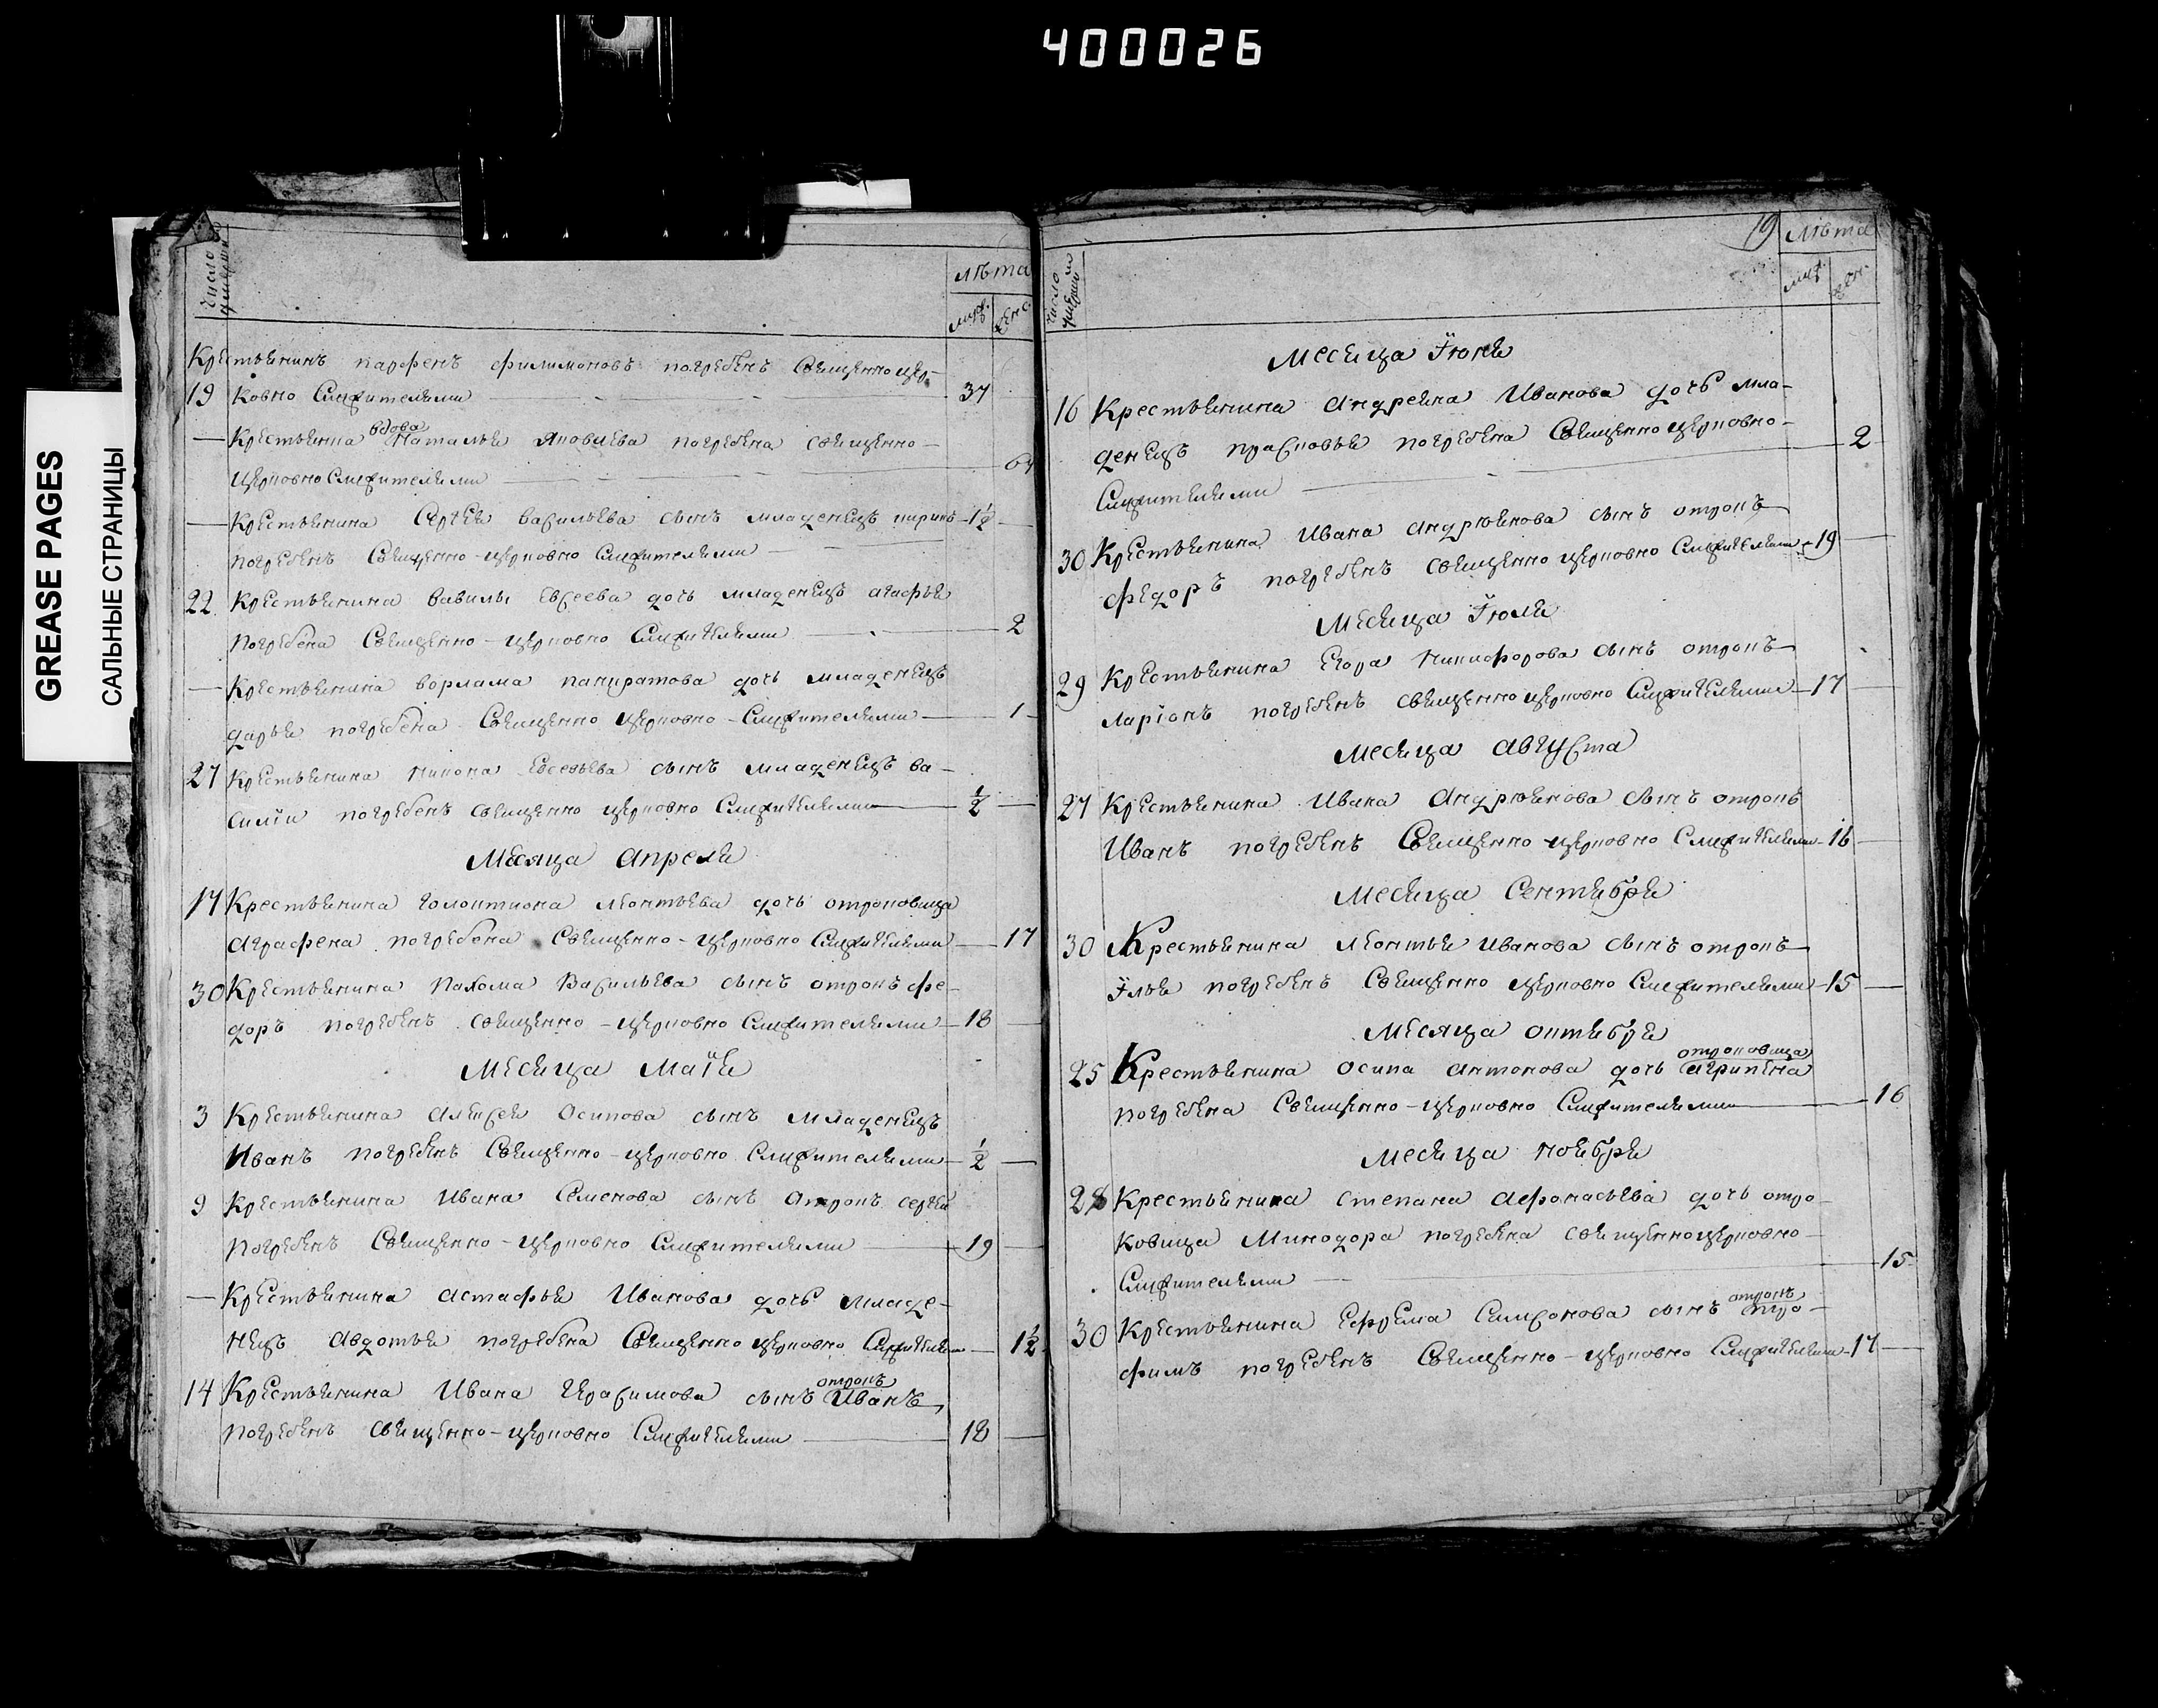 400026
GREASE PAGES
САЛЬНЫЕ СТРАНИЦЫ
Число
лѣта
муж. женс.
Крестьянинъ парфенъ филимоновъ погребенъ Священноцер-
19 ковно Служителями 37
— Крестьянина вдова Наталья Яковлева погребена священно-
церковно Служителями
— Крестьянина Сергея васильева сынъ младенецъ кирикъ 1½
погребенъ Священно-церковно Служителями
22 Крестьянина вавилы Евсеева дочь младенецъ агафья
погребена Священно-церковно Служителями 2
— Крестьянина ворлама панкратова дочь младенецъ
дарья погребена Священно церковно-Служителями 1
27 Крестьянина никона Евсевьева сынъ младенецъ ва-
силiи погребенъ священно церковно Служителями ½
Месяца Апреля
17 Крестьянина голоктиона леонтьева дочь отроковица
аграфена погребена Священно-церковно Служителями 17
30 Крестьянина Пахома Васильева сынъ отрокъ фе-
доръ погребенъ священно-церковно Служителями 18
Месяца Маiя
3 Крестьянина алексея Осипова сынъ младенецъ
Иванъ погребенъ Священно-церковно Служителями ½
9 Крестьянина Ивана Семенова сынъ отрокъ сергеи
погребенъ Священно-церковно Служителями 19
— Крестьянина астафья Иванова дочь младе-
нецъ Авдотья погребена Священно церковно Служителями 1½
14 Крестьянина Ивана Герасимова сынъ отрокъ Иванъ
погребенъ священно-церковно Служителями 18
19
лѣта
число
муж. жен.
Месяца Їюня
16 Крестьянина Андреяна Иванова дочь мла-
денецъ прасковья погребена Священноцерковно- 2
Служителями
30 Крестьянина Ивана андрюянова сынъ отрокъ
федоръ погребенъ священно церковно Служителями 19
Месяца Їюля
29 Крестьянина Егора никифорова сынъ отрокъ
ларiонъ погребенъ священно церковно Служителями 17
Месяца августа
27 Крестьянина Ивана Андрюянова сынъ отрокъ
Иванъ погребенъ Священно церковно Служителями 16
Месяца Сентября
30 Крестьянина леонтья иванова сынъ отрокъ
Їлья погребенъ Священно церковно Служителями 15
Месяца октября
25 Крестьянина осипа антонова дочь отроковица агрипена
погребена Священно-церковно Служителями 16
Месяца ноября
28 Крестьянина степана афонасьева дочь отро-
ковица Минодора погребена священноцерковно
Служителями 15
30 Крестьянина Ефрема Самсонова сынъ отрокъ тро-
фимъ погребенъ Священно-церковно Служителями 17